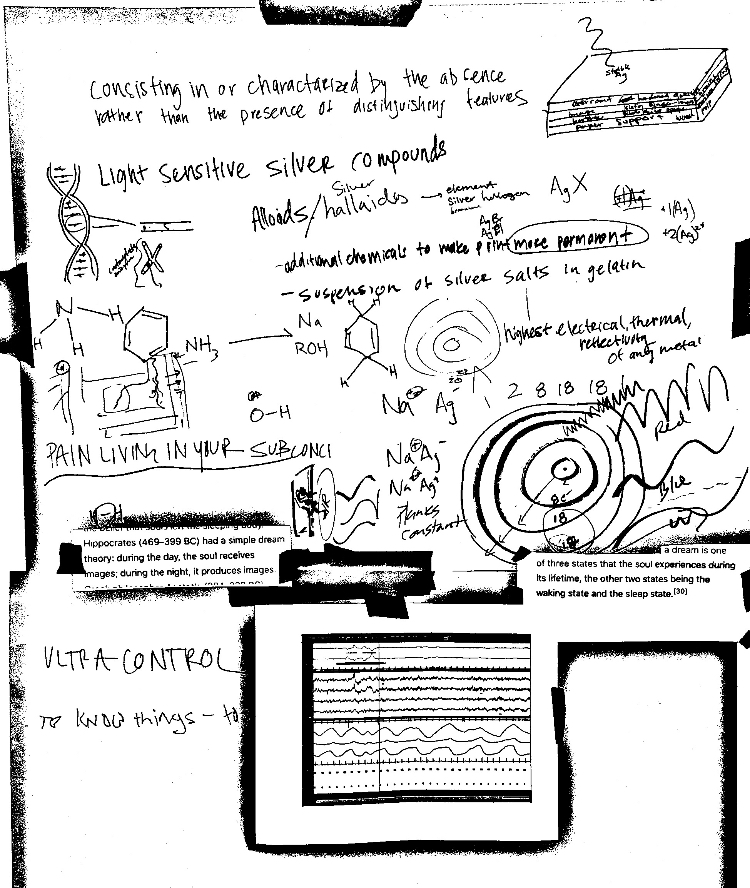 consisting in or charactarized by the absence
rather than the presence of distinguishing features
stable
Ag
support
Light sensitive silver compounds
Silver
Alloids/hallaides → element
Silver hallogen
AgX
AgBr
+1(Ag)
-additional chemicals to make print more permanent
- suspension of silver salts in gelatin
N H
H H
NH3
Na
ROH
H
H
highest electrical, thermal,
reflectivity
of any metal
O-H
Na⊕ Ag
1 2 8 18 18
Red
PAIN LIVING IN YOUR SUBCONCI
Na⊕Ag-
Na⊕Ag
Planks
Constant
Blue
UV
18
O-H
Hippocrates (469–399 BC) had a simple dream
theory: during the day, the soul receives
images; during the night, it produces images.
a dream is one
of three states that the soul experiences during
its lifetime, the other two states being the
waking state and the sleep state.[30]
ULTRA-CONTROL
TO KNOW things - to